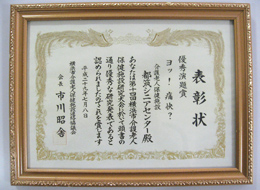 表彰状
優秀演題賞
ヨッ!痛快?
介護老人保健施設
都筑シニアセンター殿
あなたは第十回横浜市介護老人
保健施設研究大会にて頭書の
通り優秀な研究発表であると
認められましたのでこれを賞します
平成二十九年七月八日
横浜市介護老人保健施設連絡協議会
会長 市川昭